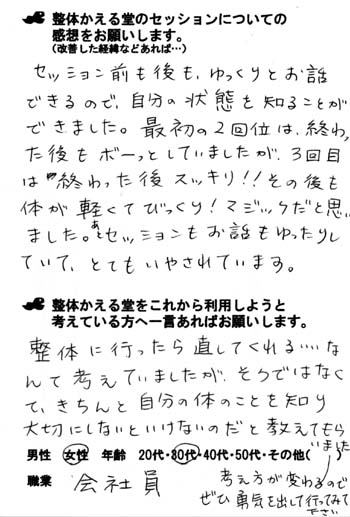 整体かえる堂のセッションについての
感想をお願いします。
(改善した経緯などあれば…)
セッション前も後も、ゆっくりとお話
できるので、自分の状態を知ることが
できました。最初の2回位は、終わっ
た後もボーっとしていましたが、3回目
は終わった後スッキリ!!その後も
体が軽くてびっくり!マジックだと思い
ました。あとセッションもお話もゆったりし
ていて、とてもいやされています。
整体かえる堂をこれから利用しようと
考えている方へ一言あればお願いします。
整体に行ったら直してくれる….な
んて考えていましたが、そうではなく
て、きちんと自分の体のことを知り
大切にしないといけないのだと教えてもら
いました
男性 女性 年齢 20代・30代・40代・50代・その他( )
職業 会社員
考え方が変わるので
ぜひ勇気を出して行ってみて
ださい